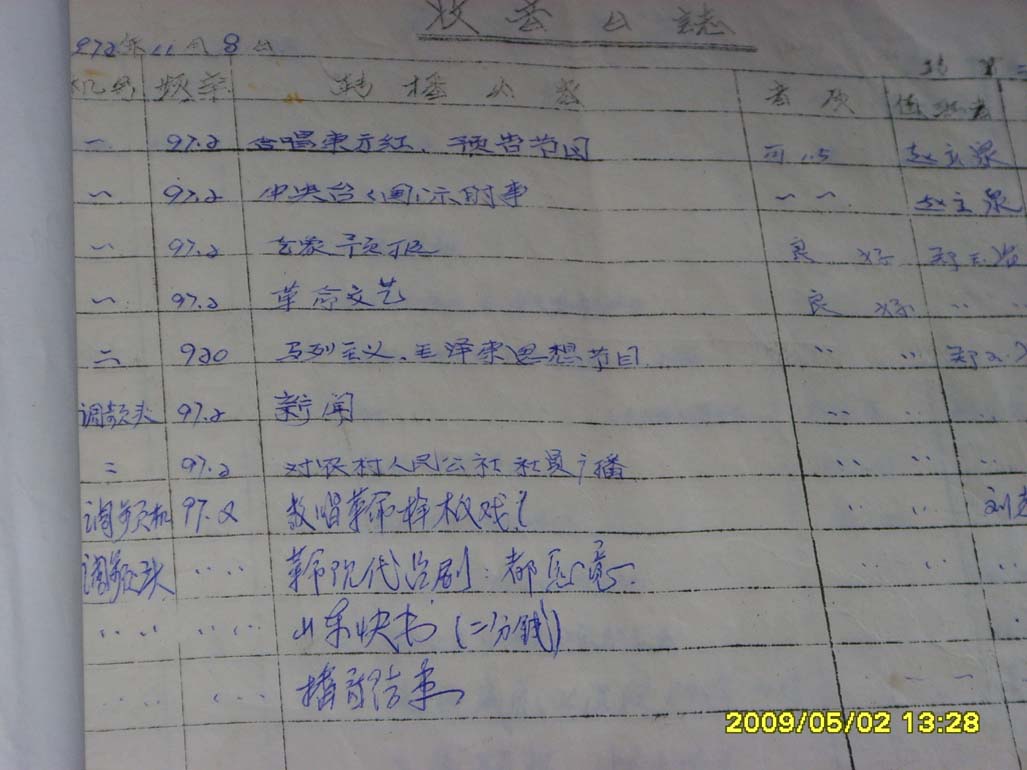 收音日誌
972年11月8日
机号 频率 转播内容 音质 值班者
一 97.2 合唱东方红、预告节目 可1.5 赵立泉
〃 97.2 中央台 时事 〃 〃 赵立泉
〃 97.2 气象予报 良 好
〃 97.2 革命文艺 良 好 〃 〃
二 920 马列主义、毛泽东思想节目 〃 〃
调频头 97.2 新闻 〃 〃 〃
二 97.2 对农村人民公社社员广播 〃 〃 〃
调频机 97.2 教唱革命样板戏 〃 〃 刘
调频头 〃 〃 革命现代吕剧：都愿意 〃 〃 〃
〃 〃 〃 〃 山东快书（二分钱）
〃 〃 〃 〃 播音结束
2009/05/02 13:28